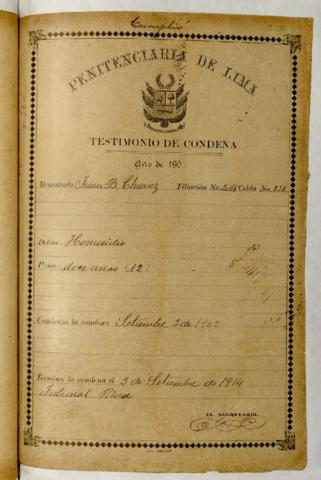 Cumplió
PENITENCIARIA DE LIMA
TESTIMONIO DE CONDENA
Año de 190
Rematado Juan B. Chavez Filiación No. Celda No.
Delito Homicidio
Pena doce años (12)
Comienza la condena Setiembre 3 de 1902
Termina la condena el 3 de Setiembre de 1914
Tribunal
EL SECRETARIO